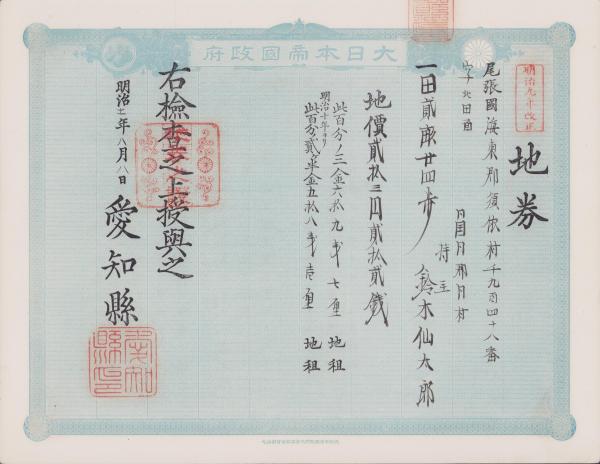 大日本帝國政府
明治九年改正
地券
尾張國海東郡須依村千九百四十八番
字北田面
同国同郡同村
一田貳畝廿四歩
持主 鈴木仙太郎
地價貳拾三円貳拾貳銭
此百分ノ三金六拾九銭七厘 地租
明治十年ヨリ
此百分貳半金五拾八銭壱厘 地租
右檢查之上授與之
明治十一年八月八日
愛知縣
愛知縣印